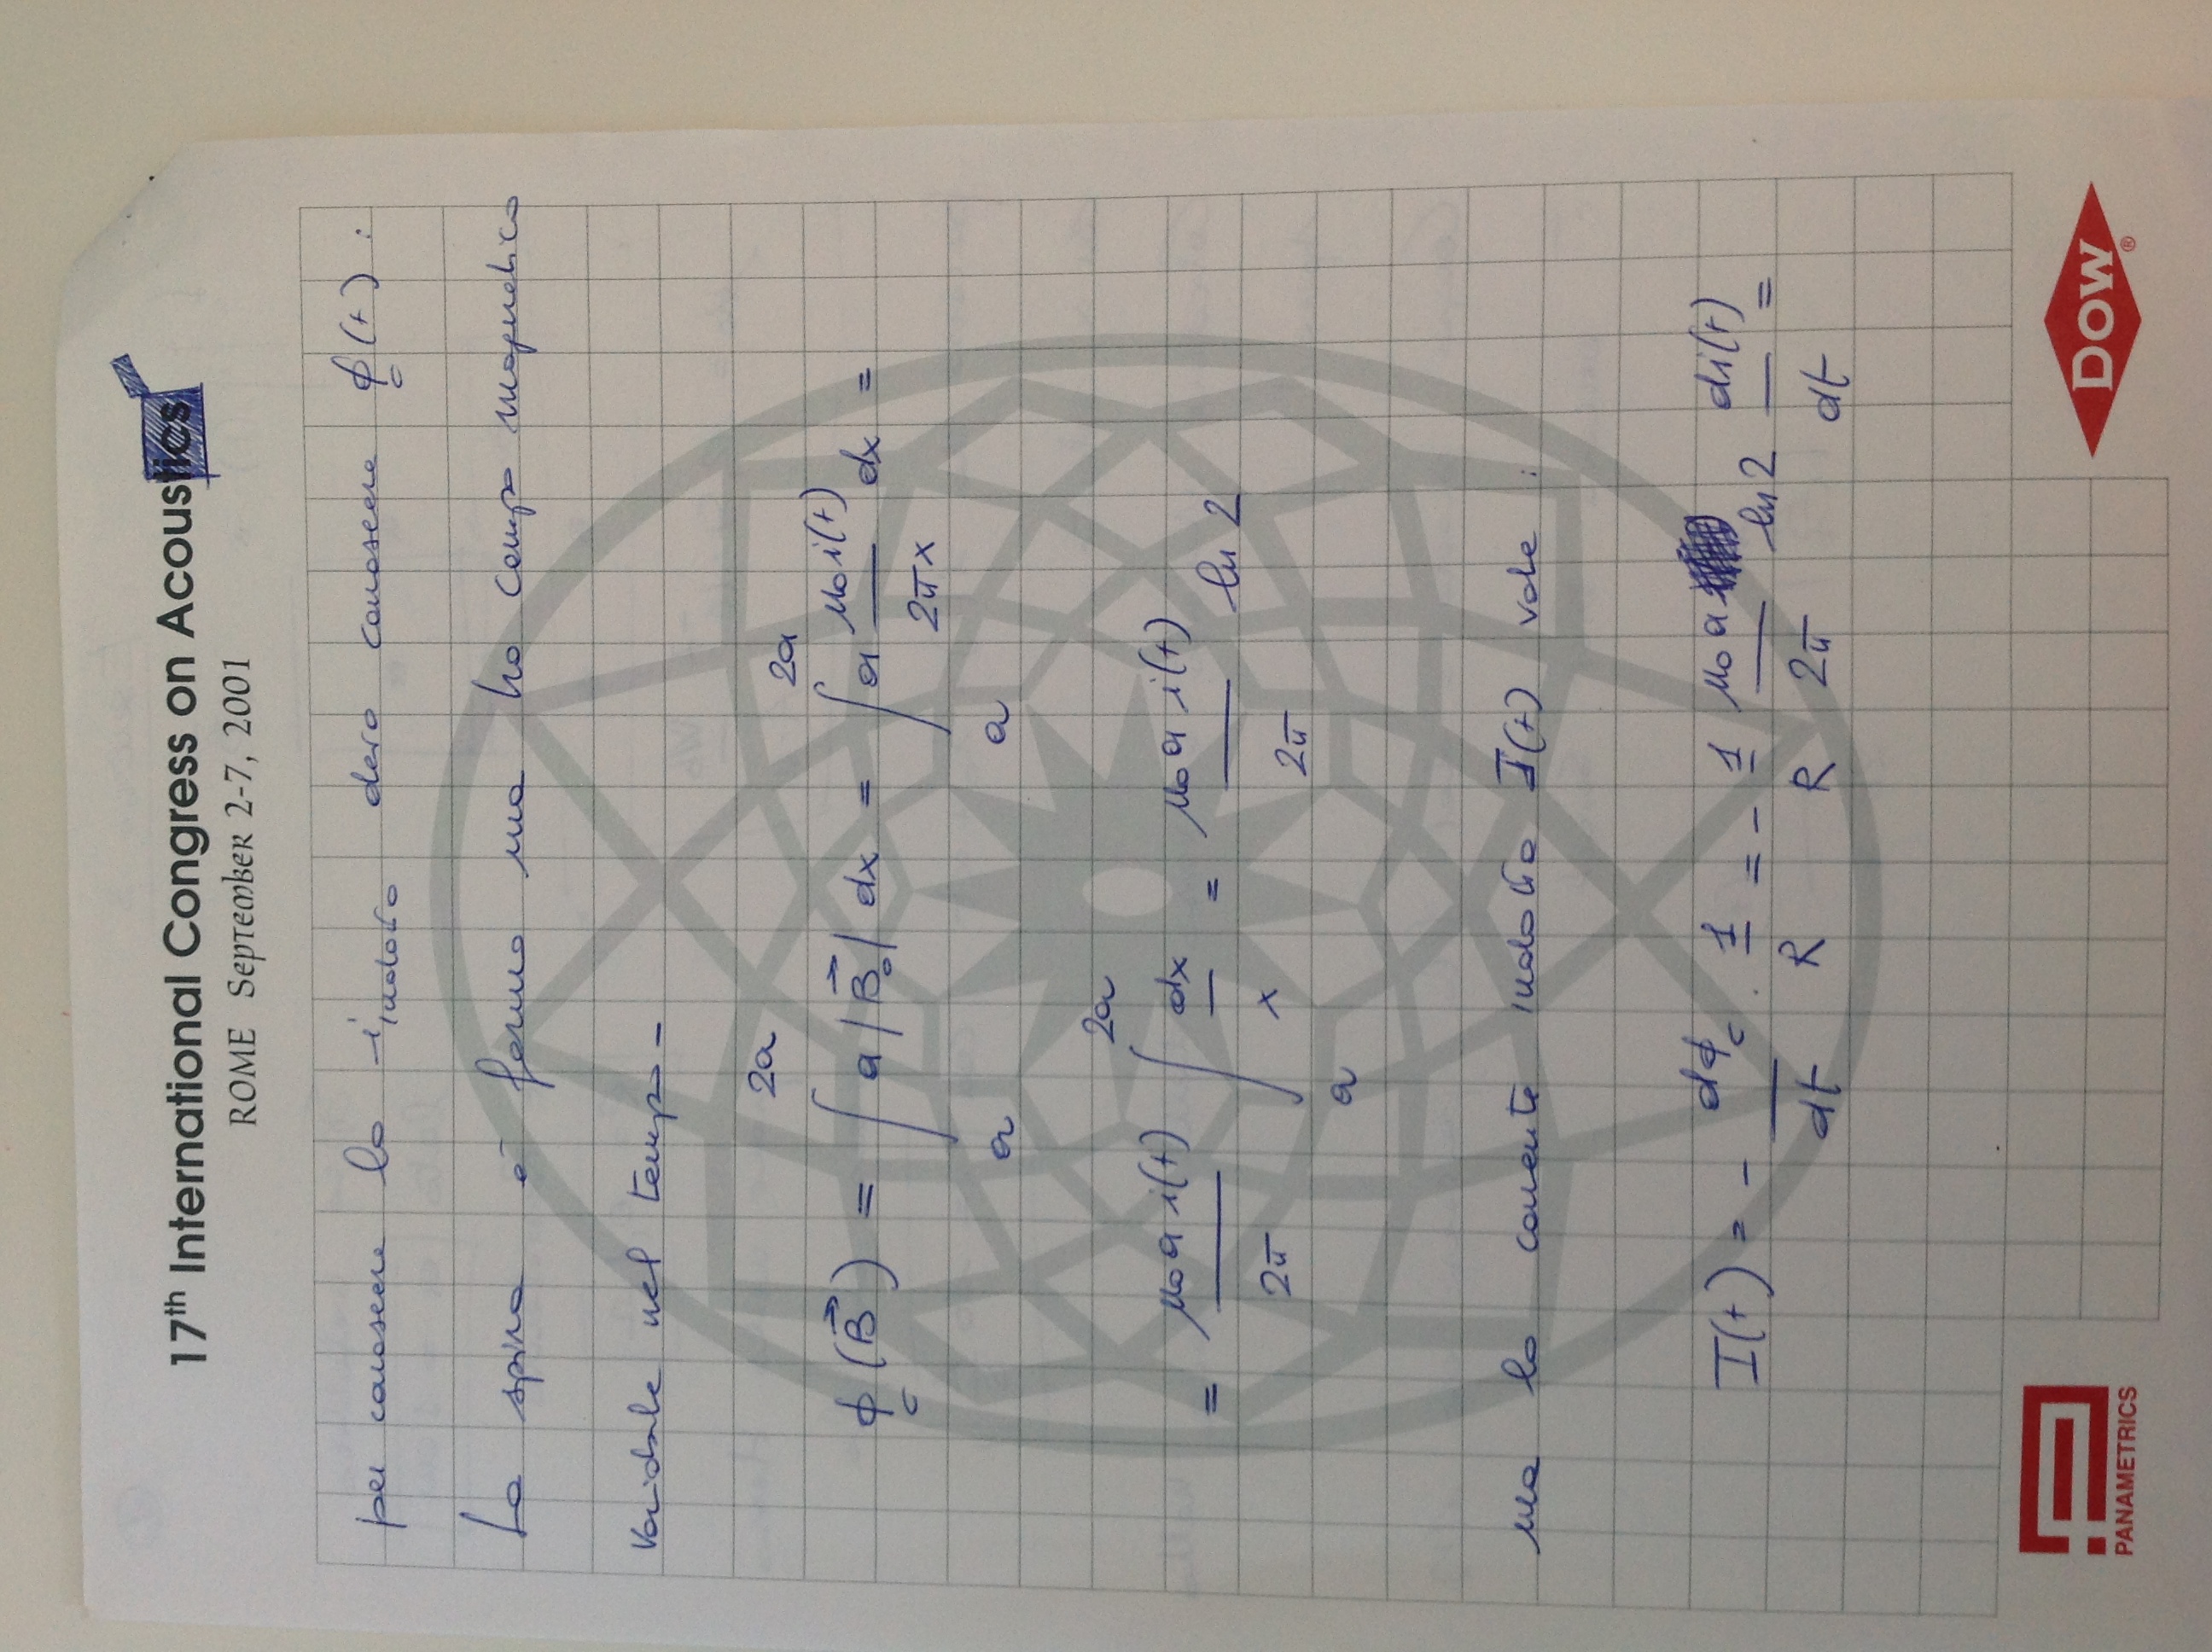 17th International Congress on Acoustics
ROME September 2-7, 2001
per conoscere la i indotta devo conoscere ϕc(t) :
La spira è ferma ma ho campo magnetico
variabile nel tempo -
ϕc(B⃗) = ∫_a^{2a} a |B⃗₀| dx = ∫_a^{2a} a μ₀ i(t) / 2πx dx =
= μ₀ a i(t) / 2π ∫_a^{2a} dx / x = μ₀ a i(t) / 2π ln 2
ma la corrente indotta I(t) vale :
I(t) = - dϕc / dt · 1 / R = - 1 / R μ₀ a / 2π ln 2 di(t) / dt =
PANAMETRICS
DOW®